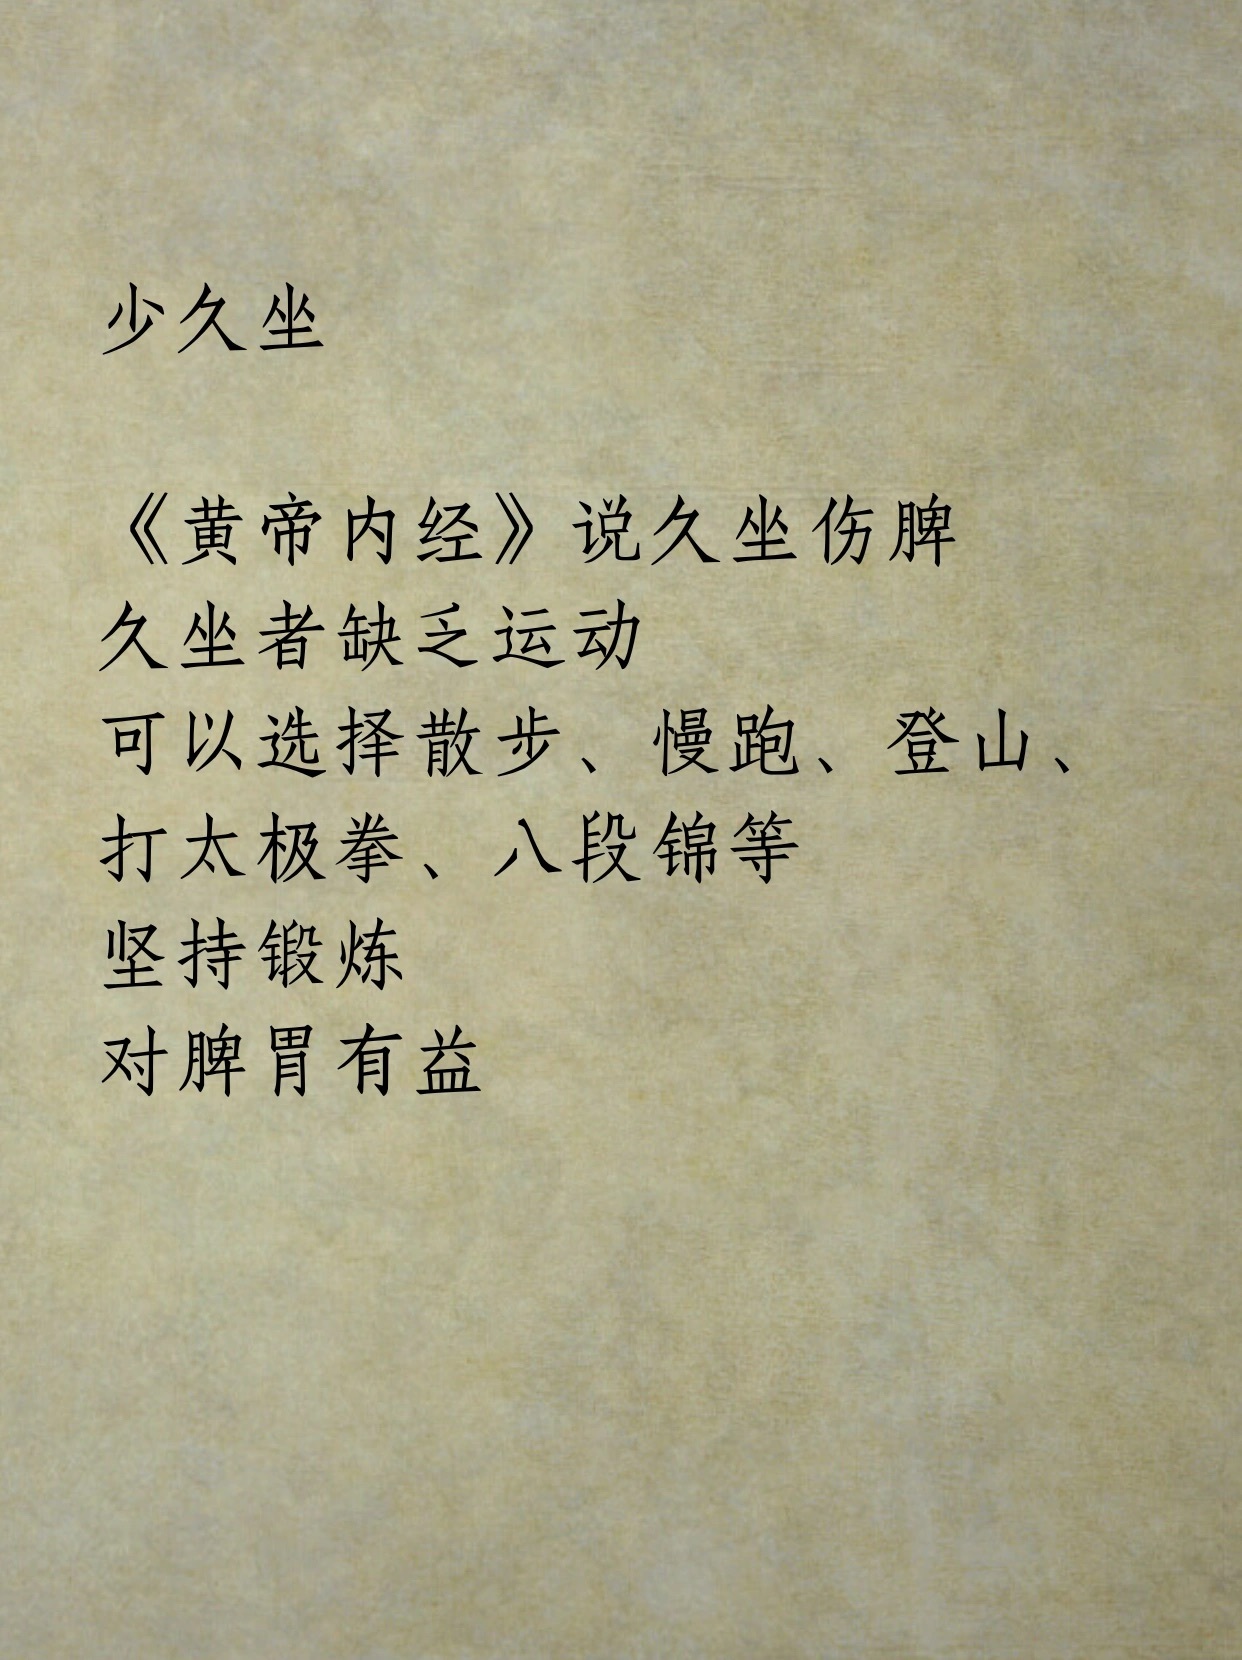 少久坐
《黄帝内经》说久坐伤脾
久坐者缺乏运动
可以选择散步、慢跑、登山、
打太极拳、八段锦等
坚持锻炼
对脾胃有益